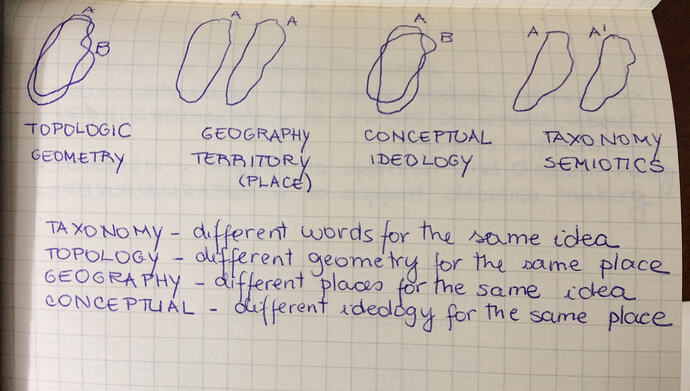 A
B
A A
A
B
A A'
TOPOLOGIC
GEOMETRY
GEOGRAPHY
TERRITORY
(PLACE)
CONCEPTUAL
IDEOLOGY
TAXONOMY
SEMIOTICS
TAXONOMY - different words for the same idea
TOPOLOGY - different geometry for the same place
GEOGRAPHY - different places for the same idea
CONCEPTUAL - different ideology for the same place